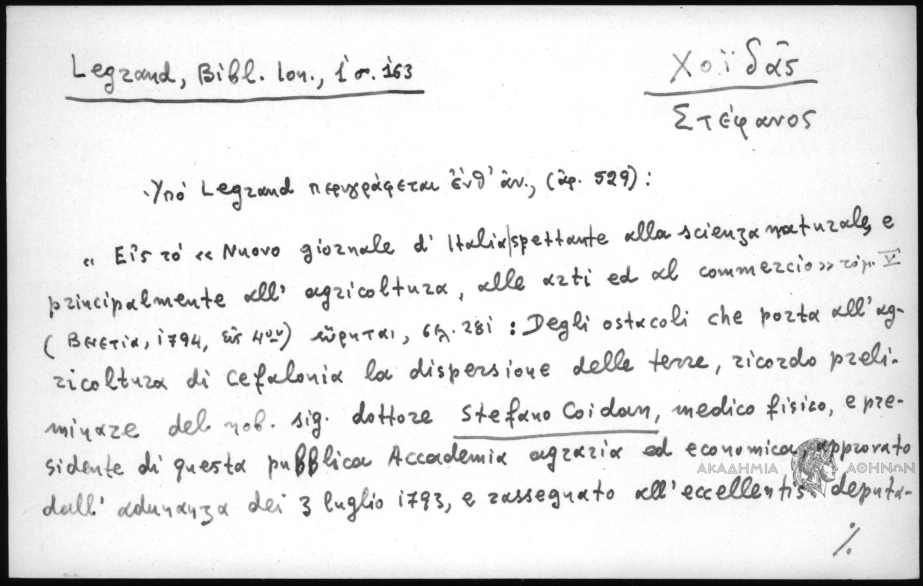 Legrand, Bibl. Ion., 1 σ. 163
Χοϊδᾶς
Στέφανος
Ὑπό Legrand περιγράφεται ἐνθ' ἀν., (ἀρ. 529):
« Εἰς τό «Nuovo giornale d'Italia spettante alla scienza naturale, e
principalmente all' agricoltura, alle arti ed al commercio» τόμ. V
(Βενετία, 1794, εἰς 4ον) εὕρηται, σελ. 281: Degli ostacoli che porta all'ag-
ricoltura di Cefalonia la dispersione delle terre, ricordo preli-
minare del nob. sig. dottore Stefano Coidan, medico fisico, e pre-
sidente di questa pubblica Accademia agraria ed economica, approvato
dall' adunanza dei 3 luglio 1793, e rassegnato all'eccellentis. deputa-
%
ΑΚΑΔΗΜΙΑ ΑΘΗΝΩΝ